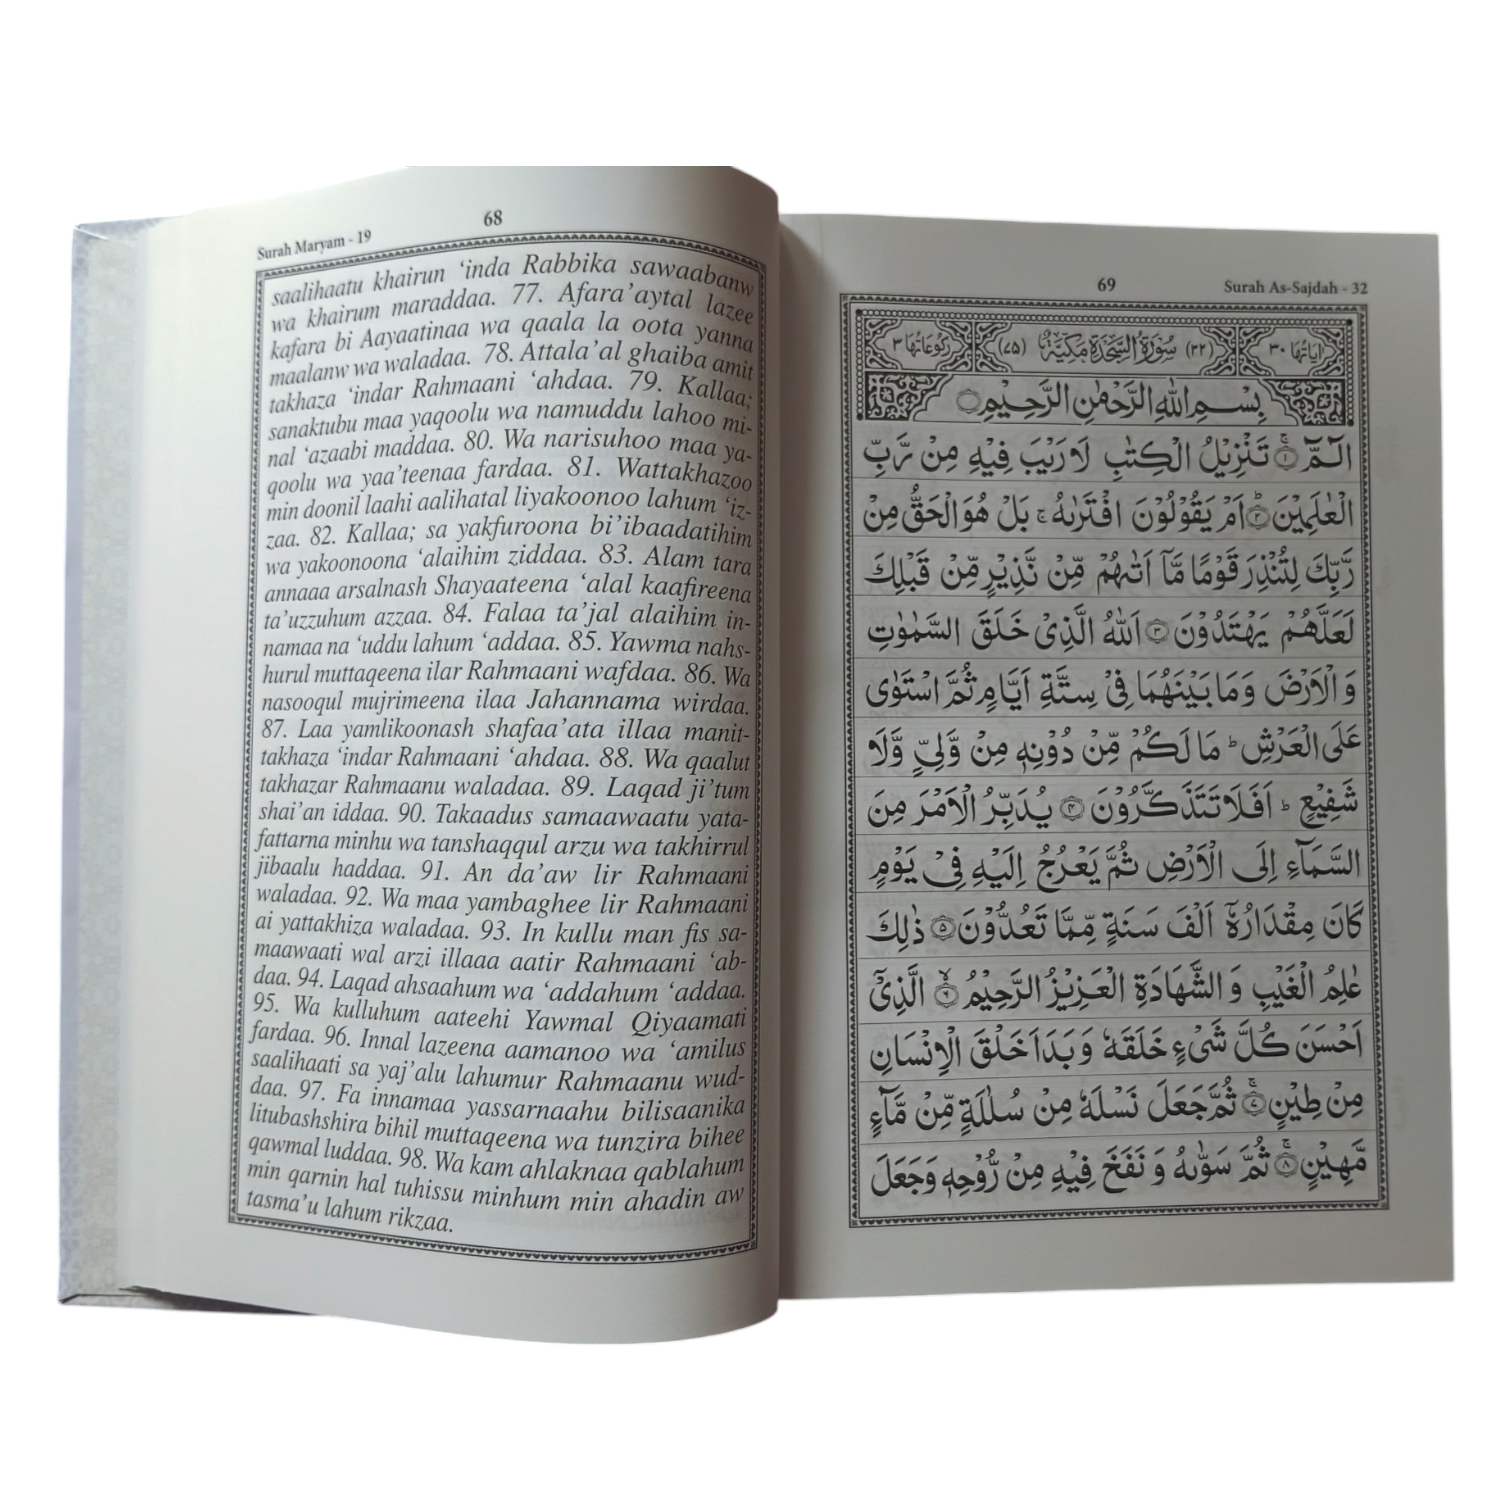 68
Surah Maryam - 19
saalihaatu khairun ‘inda Rabbika sawaabanw
wa khairum maraddaa. 77. Afara’aytal lazee
kafara bi Aayaatinaa wa qaala la oota yanna
maalanw wa waladaa. 78. Attala’al ghaiba amit
takhaza ‘indar Rahmaani ‘ahdaa. 79. Kallaa;
sanaktubu maa yaqoolu wa namuddu lahoo mi-
nal ‘azaabi maddaa. 80. Wa narisuhoo maa ya-
qoolu wa yaa’teenaa fardaa. 81. Wattakhazoo
min doonil laahi aalihatal liyakoonoo lahum ‘iz-
zaa. 82. Kallaa; sa yakfuroona bi’ibaadatihim
wa yakoonoona ‘alaihim ziddaa. 83. Alam tara
annaaa arsalnash Shayaateena ‘alal kaafireena
ta’uzzuhum azzaa. 84. Falaa ta’jal alaihim in-
namaa na ‘uddu lahum ‘addaa. 85. Yawma nahs-
hurul muttaqeena ilar Rahmaani wafdaa. 86. Wa
nasooqul mujrimeena ilaa Jahannama wirdaa.
87. Laa yamlikoonash shafaa’ata illaa manit-
takhaza ‘indar Rahmaani ‘ahdaa. 88. Wa qaalut
takhazar Rahmaanu waladaa. 89. Laqad ji’tum
shai’an iddaa. 90. Takaadus samaawaatu yata-
fattarna minhu wa tanshaqqul arzu wa takhirrul
jibaalu haddaa. 91. An da’aw lir Rahmaani
waladaa. 92. Wa maa yambaghee lir Rahmaani
ai yattakhiza waladaa. 93. In kullu man fis sa-
maawaati wal arzi illaaa aatir Rahmaani ‘ab-
daa. 94. Laqad ahsaahum wa ‘addahum ‘addaa.
95. Wa kulluhum aateehi Yawmal Qiyaamati
fardaa. 96. Innal lazeena aamanoo wa ‘amilus
saalihaati sa yaj’alu lahumur Rahmaanu wud-
daa. 97. Fa innamaa yassarnaahu bilisaanika
litubashshira bihil muttaqeena wa tunzira bihee
qawmal luddaa. 98. Wa kam ahlaknaa qablahum
min qarnin hal tuhissu minhum min ahadin aw
tasma’u lahum rikzaa.
69
Surah As-Sajdah - 32
اٰیاتُهَا ٣٠ (٣٢) سُوْرَةُ السَّجْدَةِ مَكِّيَّةٌ (٧٥) رُكُوْعَاتُهَا ٣
بِسْمِ اللهِ الرَّحْمٰنِ الرَّحِيْمِ
الٓمّٓ ۚ﴿١﴾ تَنْزِيْلُ الْكِتٰبِ لَا رَيْبَ فِيْهِ مِنْ رَّبِّ
الْعٰلَمِيْنَ ؕ﴿٢﴾ اَمْ يَقُوْلُوْنَ افْتَرٰىهُ ۚ بَلْ هُوَ الْحَقُّ مِنْ
رَّبِّكَ لِتُنْذِرَ قَوْمًا مَّاۤ اَتٰىهُمْ مِّنْ نَّذِيْرٍ مِّنْ قَبْلِكَ
لَعَلَّهُمْ يَهْتَدُوْنَ ﴿٣﴾ اَللّٰهُ الَّذِيْ خَلَقَ السَّمٰوٰتِ
وَ الْاَرْضَ وَمَا بَيْنَهُمَا فِيْ سِتَّةِ اَيَّامٍ ثُمَّ اسْتَوٰى
عَلَى الْعَرْشِ ؕ مَا لَكُمْ مِّنْ دُوْنِهٖ مِنْ وَّلِيٍّ وَّلَا
شَفِيْعٍ ؕ اَفَلَا تَتَذَكَّرُوْنَ ﴿٤﴾ يُدَبِّرُ الْاَمْرَ مِنَ
السَّمَآءِ اِلَى الْاَرْضِ ثُمَّ يَعْرُجُ اِلَيْهِ فِيْ يَوْمٍ
كَانَ مِقْدَارُهٗۤ اَلْفَ سَنَةٍ مِّمَّا تَعُدُّوْنَ ﴿٥﴾ ذٰلِكَ
عٰلِمُ الْغَيْبِ وَ الشَّهَادَةِ الْعَزِيْزُ الرَّحِيْمُ ۙ﴿٦﴾ الَّذِيْۤ
اَحْسَنَ كُلَّ شَيْءٍ خَلَقَهٗ وَ بَدَاَ خَلْقَ الْاِنْسَانِ
مِنْ طِيْنٍ ۚ﴿٧﴾ ثُمَّ جَعَلَ نَسْلَهٗ مِنْ سُلٰلَةٍ مِّنْ مَّآءٍ
مَّهِيْنٍ ۚ﴿٨﴾ ثُمَّ سَوّٰىهُ وَ نَفَخَ فِيْهِ مِنْ رُّوْحِهٖ وَ جَعَلَ